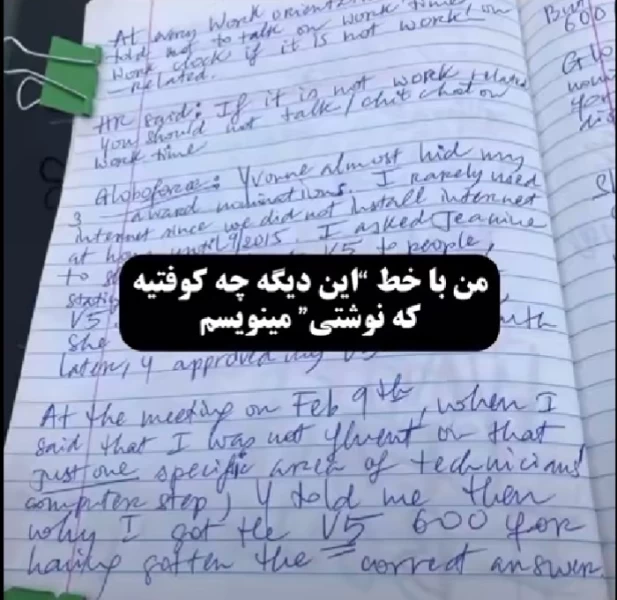 At every Work
told not to talk on work time
Work clock if it is not work
related.
HR said: If it is not work related
you should not talk / chit chat on
work time
Globoforce: Yvonne almost hid my
3 award nominations. I rarely used
internet since we did not install internet
at until 9/2015. I asked Jeanine
to V5 to people,
من با خط “این دیگه چه کوفتیه
که نوشتی” مینویسم
V5
She
later, Y approved my V5
At the meeting on Feb 9th, when I
said that I was not fluent on that
just one specific area of technicians
computer step, Y told me then
why I got the V5 600 for
having gotten the correct answer.
600
Glo